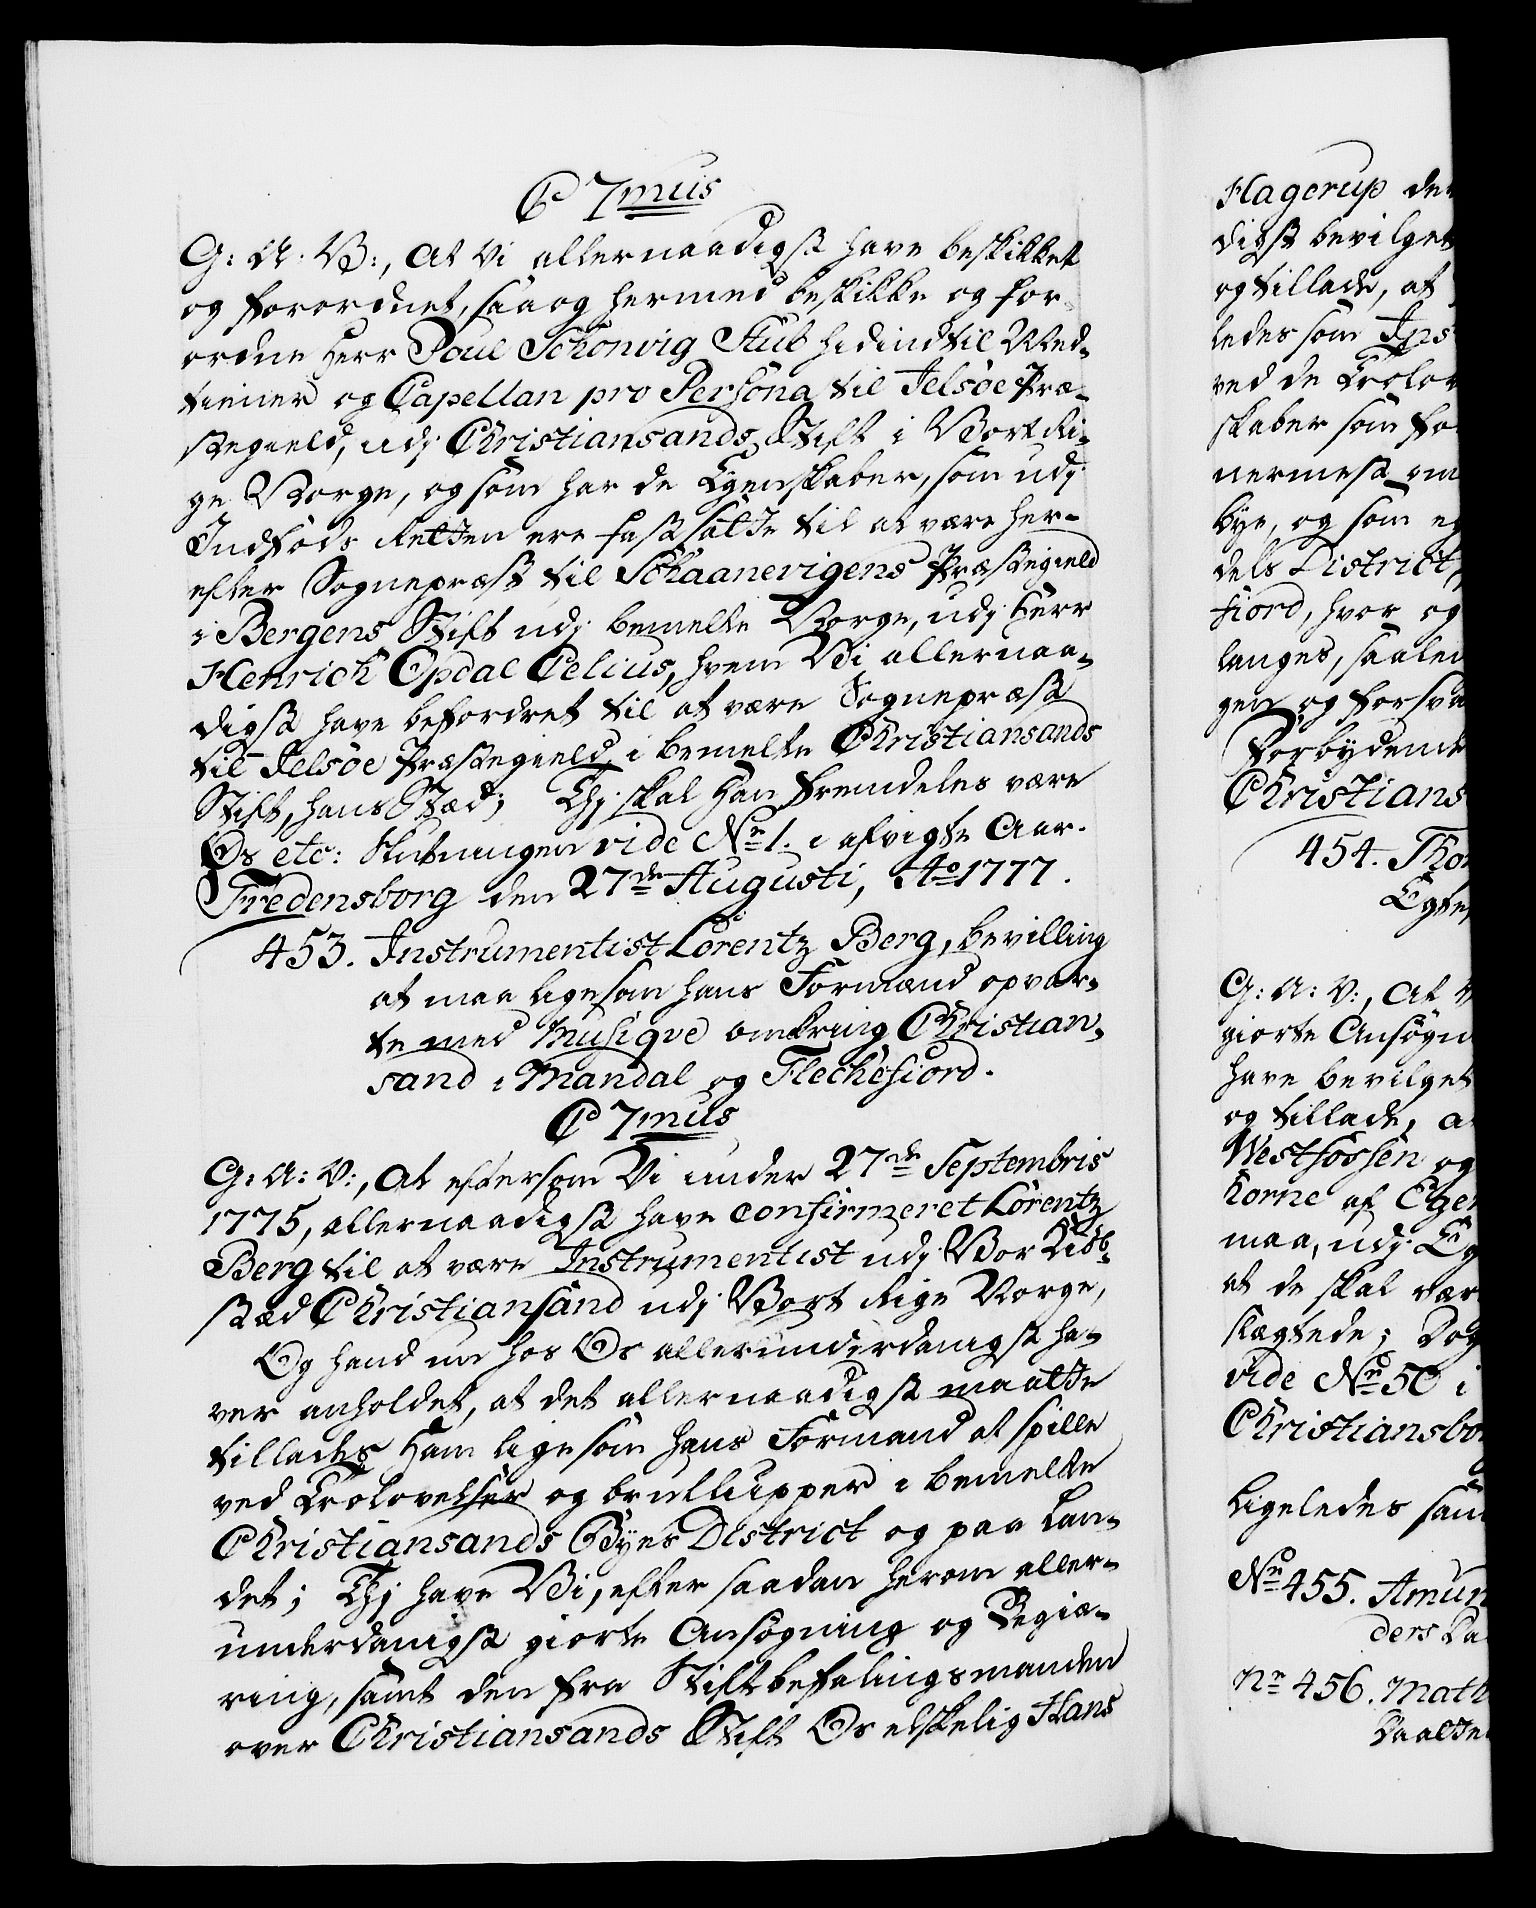 C 7mus
G: A: V:, At Vi allernaadigst have beskikket
og forordnet, saa og hermed beskikke og for-
ordne Herr Poul Schønvig Stub hidindtil Med-
tiener og Capellan pro Persona til Jelsøe Præ-
stegield, udj Christiansands Stift i Vort Ri-
ge Norge, og som har de Egenskaber, som udj
Indføds Retten ere fastsatte til at være her-
efter Sognepræst til Schaanevigens Præstegield
i Bergens Stift udj bemelte Norge, udj Herr
Henrich Opdal Celius, hvem Vi allernaa-
digst have befordret til at være Sognepræst
til Jelsøe Præstegield i bemelte Christiansands
Stift, hans Stæd; Thj skal Han fremdeles være
Os etc: Slutningen vide No 1. i afvigte Aar.
Fredensborg den 27de Augusti, Ao 1777.
453. Instrumentist Lorentz Berg, bevilling
at maa ligesom hans Formand opvar-
te med Musiqve omkring Christian-
sand i Mandal og Fleckefiord.
C 7mus
G: A: V:, At eftersom Vi under 27de Septembris
1775, allernaadigst have confirmeret Lorentz
Berg til at være Instrumentist udj Vor Kiøb-
stæd Christiansand udj Vort Rige Norge,
Og hand nu hos Os allerunderdanigst ha-
ver anholdet, at det allernaadigst maatte
tillades Ham ligesom hans Formand at spille
ved Trolovelser og brulluppper i bemelte
Christiansands Byes District og paa Lan-
det; Thj have Vi, efter saadan herom aller-
underdanigst giorte Ansøgning og Begiæ-
ring, samt den fra Stiftbefalingsmanden
over Christiansands Stift Os elskelig Hans
Hagerup
digst bevilget
og tillade, at
ledes som
ved de
skaber som
nermest om
bye, og som
dels District,
fiord, hvor og
langes,
gen og
Forbydende
Christians
454.
G: A: V:, At
giorte Ansøgn
have bevilget
og tillade,
Westfossen og
af
maa, udj
at de skal vær
slægtede; Dog
vide No 50 i
Christiansbo
Ligeledes
No 455.
ders
No 456.